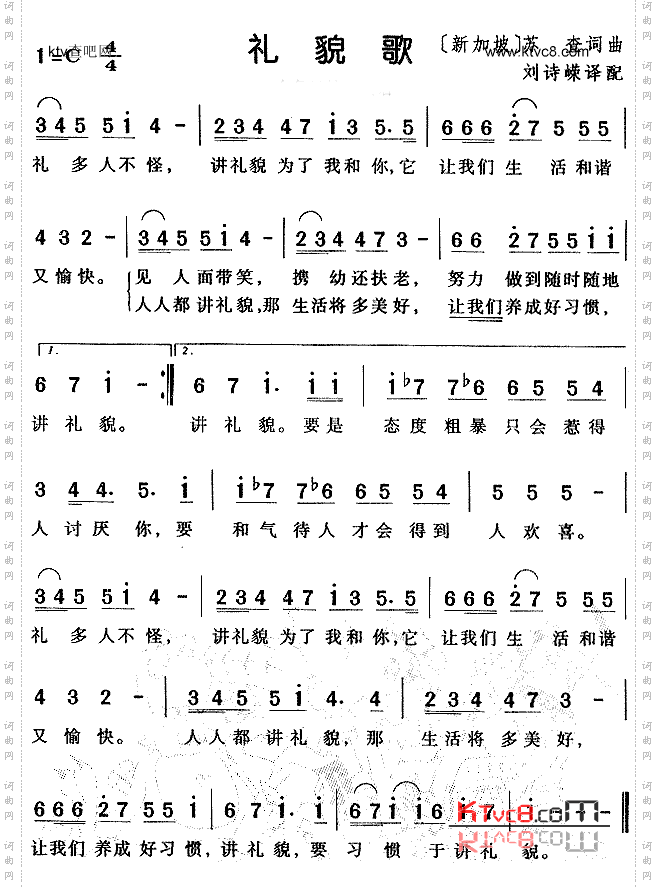 1=C 4/4 礼貌歌 〔新加坡〕苏 查词曲
ktv查吧网 www.ktvc8.com
刘诗嵘译配
3 4 5 5 1 4 - | 2 3 4 4 7 1 3 5. 5 | 6 6 6 2 7 5 5 5 |
礼 多 人 不 怪， 讲礼貌 为了 我和 你，它 让我们 生 活和谐
4 3 2 - | 3 4 5 5 1 4 - | 2 3 4 4 7 3 - | 6 6 2 7 5 5 1 1 |
又 愉 快。 见 人 面 带 笑， 携 幼 还 扶 老， 努力 做到随时随地
人人都 讲礼貌，那 生活将 多美 好， 让我们 养成 好习惯，
1. 2.
6 7 1 - :|| 6 7 1. 1 1 | 1 ♭7 7 ♭6 6 5 5 4 |
讲 礼 貌。 讲 礼 貌。要是 态度 粗暴 只会 惹得
3 4 4. 5. 1 | 1 ♭7 7 ♭6 6 5 5 4 | 5 5 5 - |
人 讨厌 你，要 和气 待人 才会 得到 人 欢 喜。
3 4 5 5 1 4 - | 2 3 4 4 7 1 3 5. 5 | 6 6 6 2 7 5 5 5 |
礼 多 人 不 怪， 讲礼貌 为了 我和 你，它 让我们 生 活和谐
4 3 2 - | 3 4 5 5 1 4. 4 | 2 3 4 4 7 3 - |
又 愉 快。 人人都 讲礼 貌，那 生活将 多美 好，
6 6 6 2 7 5 5 1 | 6 7 1. 1 | 6 7 1 1 6 1 7 | 1 - |
让我们 养成 好习惯，讲 礼 貌，要 习 惯 于讲礼 貌。
KTvc8.com
词曲网